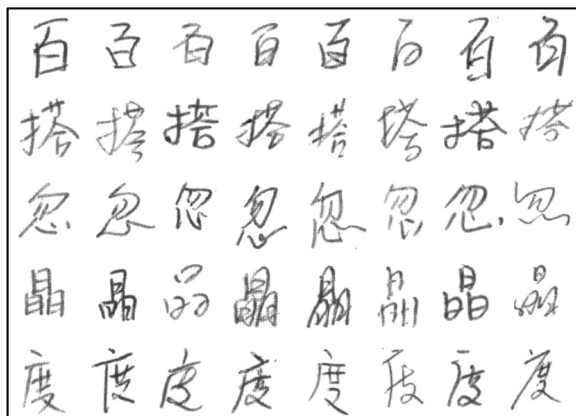 百 百 百 百 百 百 百 百
搭 搭 搭 搭 搭 搭 搭 搭
忽 忽 忽 忽 忽 忽 忽 忽
晶 晶 晶 晶 晶 晶 晶 晶
度 度 度 度 度 度 度 度